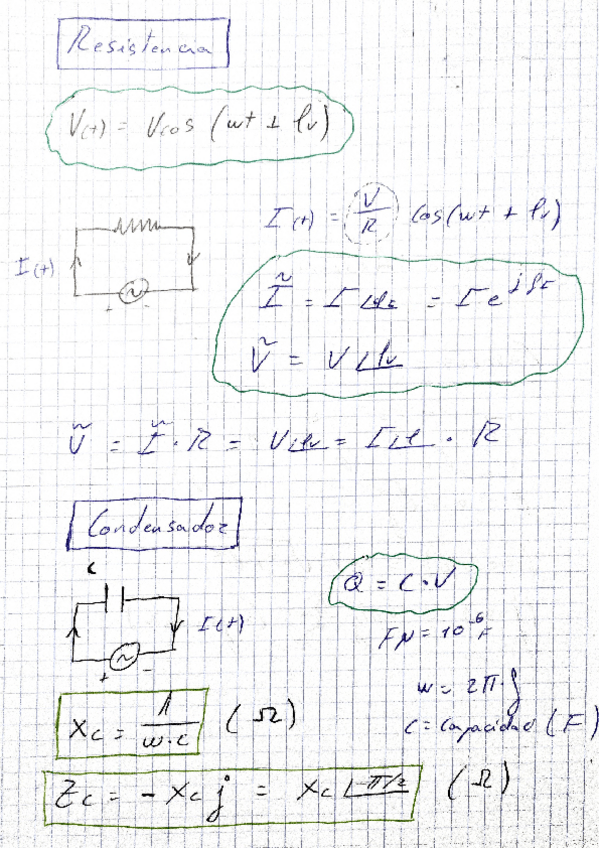 Resistencia
V(t) = V cos (wt + φv)
I(t) = V/R cos(wt + φv)
I(t)
+ -
Ĩ = I∠φI = I e^jφI
Ṽ = V∠φv
Ṽ = Ĩ · R = V∠φv = I∠φ · R
Condensador
C
Q = C · V
I(t)
Fμ = 10^-6 F
+ -
w = 2π·f
Xc = 1/w·c (Ω)
C = Capacidad (F)
Zc = - Xc j = Xc ∠-π/2 (Ω)